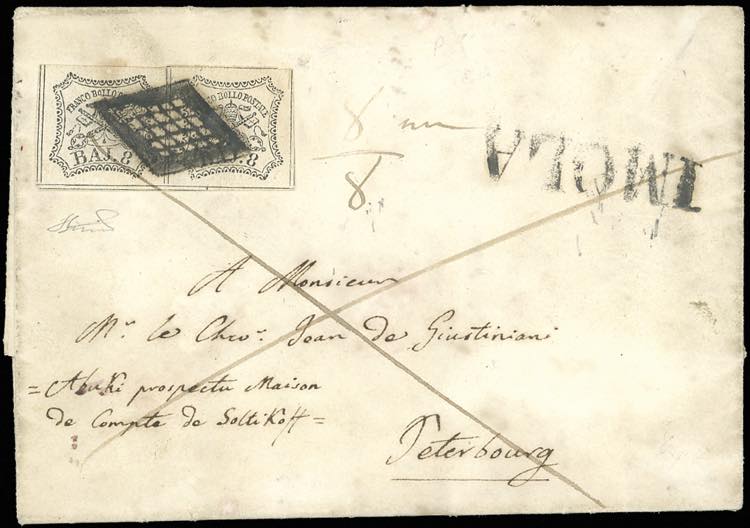 FRANCO BOLLO POSTALE
BAJ. 8
CO BOLLO POSTALE
J. 8
8
8
IMOLA
A Monsieur
Mr. le Chevr. Jean de Giustiniani
= prospectu Maison
de Compte de Soltikoff =
Peterbourg